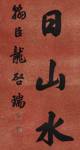 日山水
翁臣龍啓瑞